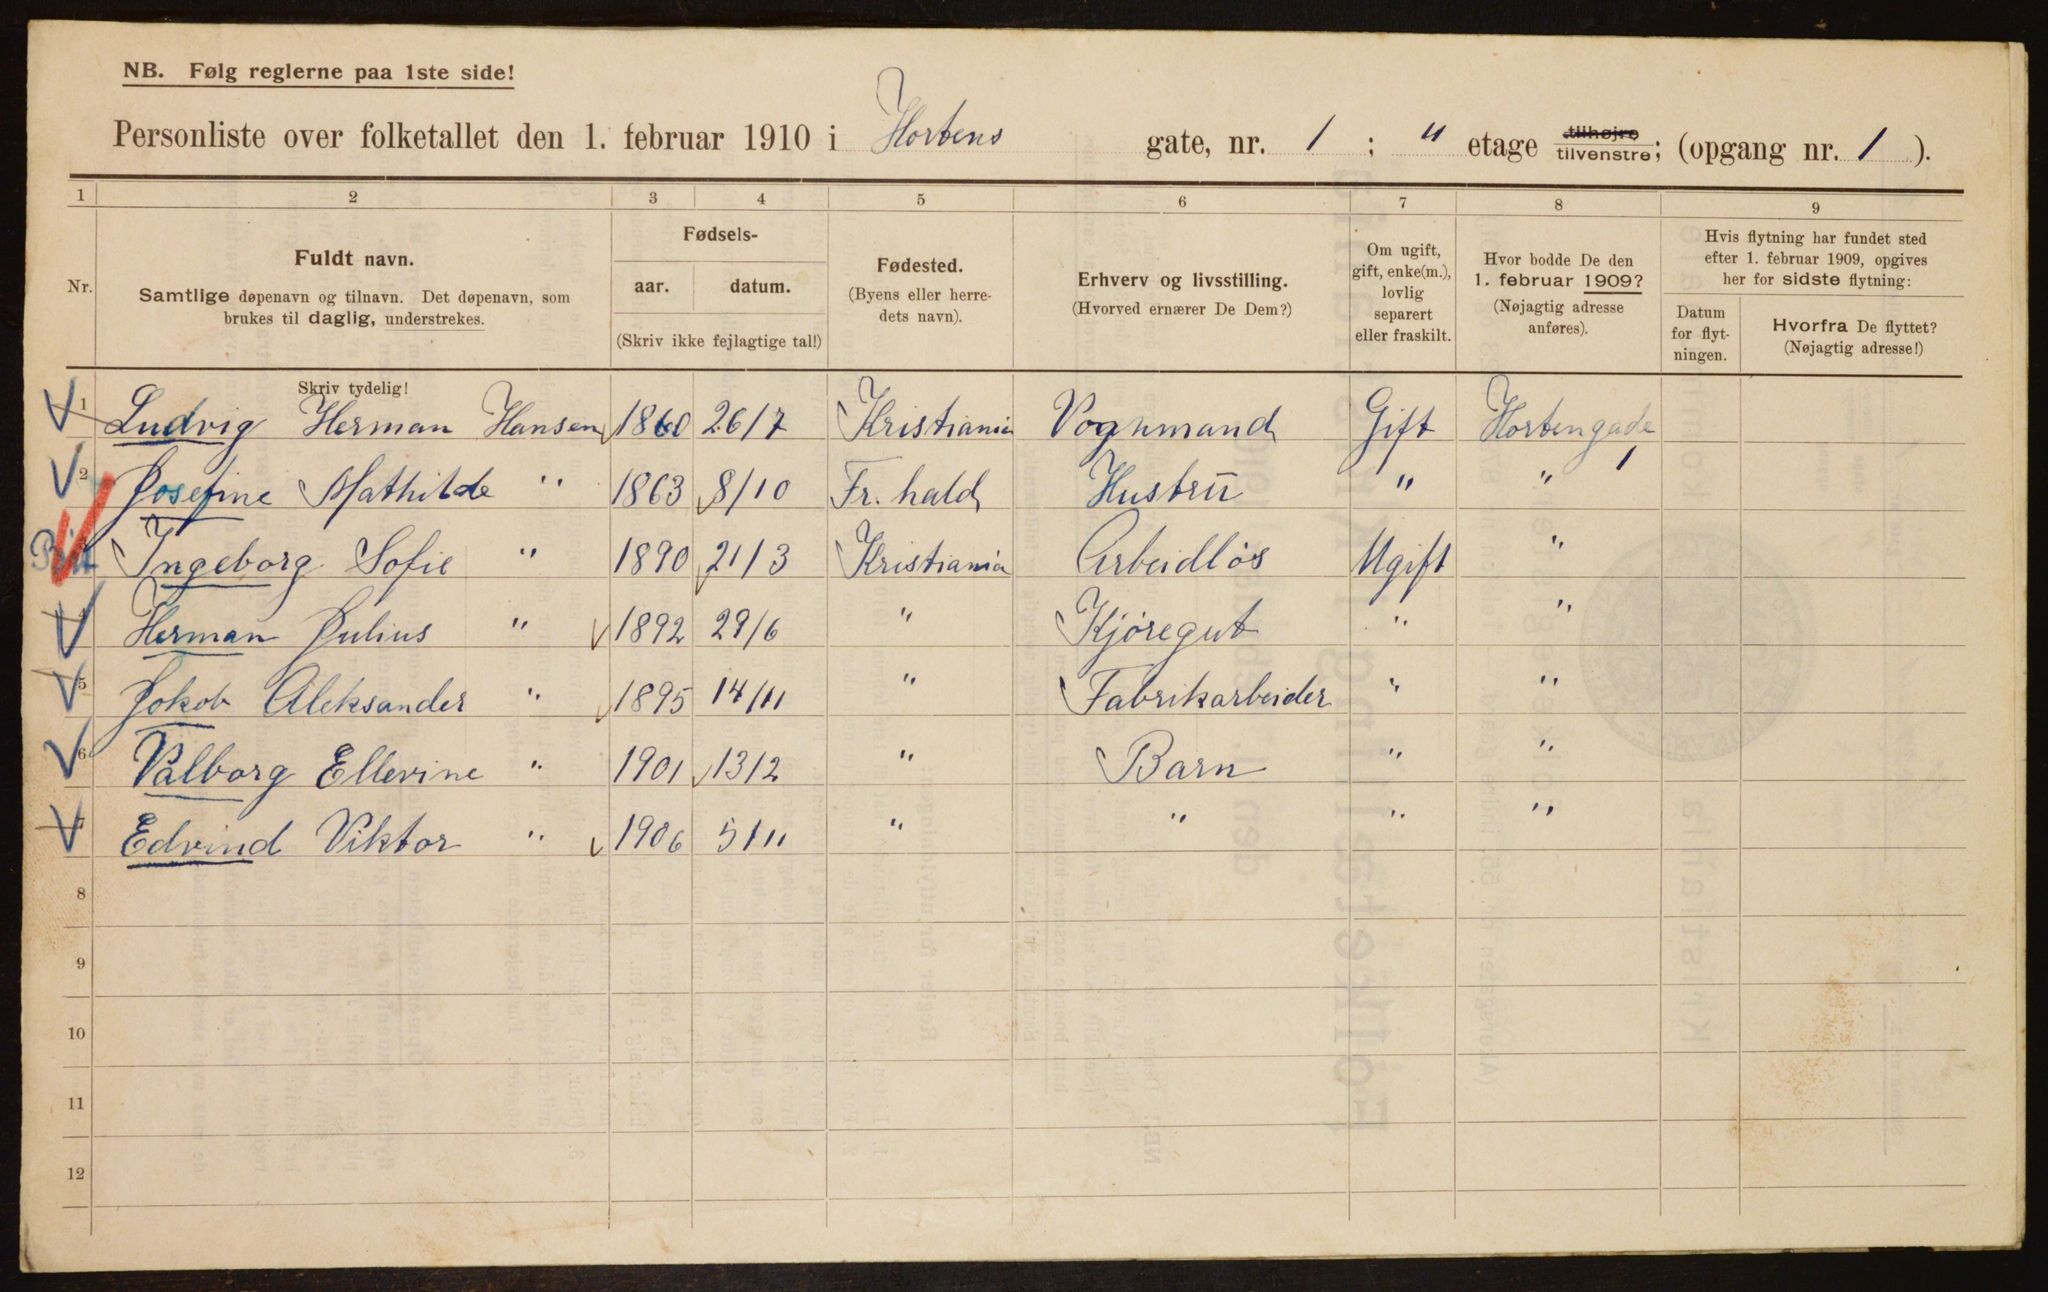 NB. Følg reglerne paa 1ste side!
Personliste over folketallet den 1. februar 1910 i Hortens gate, nr. 1 ; " etage tilhøjre tilvenstre; (opgang nr. 1 ).
1 2 3 4 5 6 7 8 9
Nr.
Fuldt navn.
Samtlige døpenavn og tilnavn. Det døpenavn, som
brukes til daglig, understrekes.
Skriv tydelig!
Fødsels-
aar. datum.
(Skriv ikke fejlagtige tal!)
Fødested.
(Byens eller herre-
dets navn).
Erhverv og livsstilling.
(Hvorved ernærer De Dem?)
Om ugift,
gift, enke(m.),
lovlig
separert
eller fraskilt.
Hvor bodde De den
1. februar 1909?
(Nøjagtig adresse
anføres).
Hvis flytning har fundet sted
efter 1. februar 1909, opgives
her for sidste flytning:
Datum
for flyt-
ningen.
Hvorfra De flyttet?
(Nøjagtig adresse!)
1 Ludvig Herman Hansen 1860 26/7 Kristiania Vognmand Gift Hortengade 1
2 Josefine Mathilde " 1863 8/10 Fr. hald Hustru " "
Ingeborg Sofie " 1890 21/3 Kristiania Arbeidløs Ugift "
4 Herman Julius " 1892 29/6 " Kjøregut " "
5 Jokob Aleksander " 1895 14/11 " Fabrikarbeider " "
6 Valborg Ellevine " 1901 13/2 " Barn " "
7 Edvind Viktor " 1906 5/11 " " " "
8
9
10
11
12